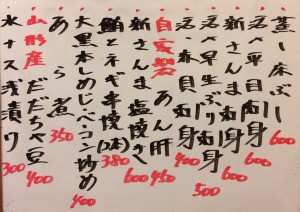 蒸し床ぶし 600
活〆平目刺身 600
新さんま刺身 600
活〆早生ぶり刺身 500
活赤貝刺身 400
自家製あん肝 450
新さんま塩焼き 600
鮪とネギ串焼(2本) 380
大黒本しめじベーコン炒め 400
あら煮 350
山形産だだちゃ豆 400
水ナス浅漬け 300